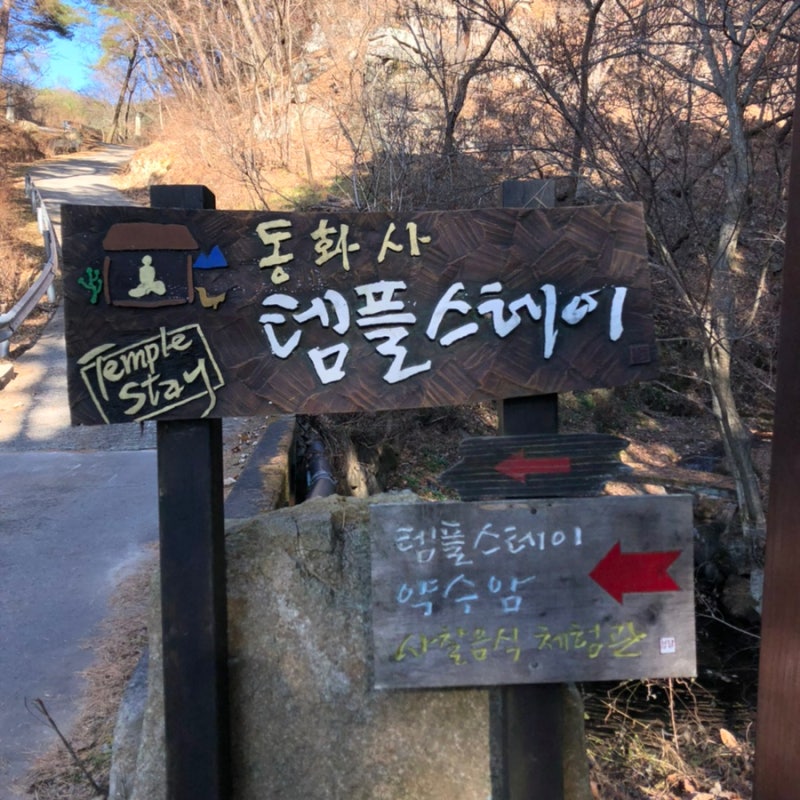 동화사
템플스테이
Temple
Stay
템플스테이
약수암
사찰음식 체험관